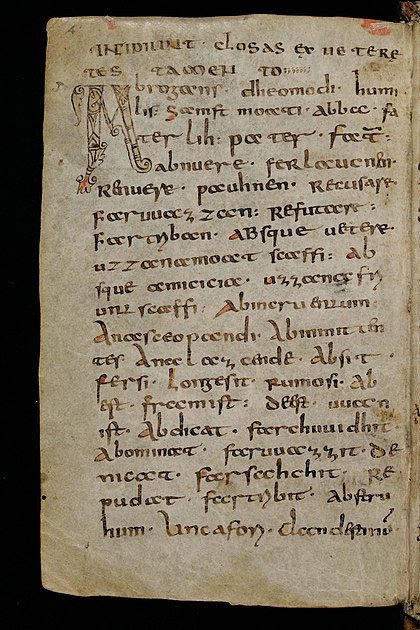 INCIPIUNT · CLOSAS EX UETERE
TES TAMEN TO
Abrogans · dheomodi · humi
lis · samftmoati · abba · fa
ter lih: pater · fat̄
abnuere · ferlaucnen ·
Renuere · pauhnen · Recusare
Faruuazzan: Refutare:
Fartriban · Absque uetere
uzzanamoat scaffi: Ab
sque amicicia · uzzana fri
unt scaffi · 
Anascaopandi · Abminitan
tes Anelazcende · Absit ·
fersi · Longe sit · Rumosi · Ab
est · fram ist: deest · uuan
ist · Abdicat · farchuuidhit
Abominat · faruuazzit · De
nicat · farsachchit · Re
pudat · fartribit · Abstru
hum · Uncafori · Clandestinū